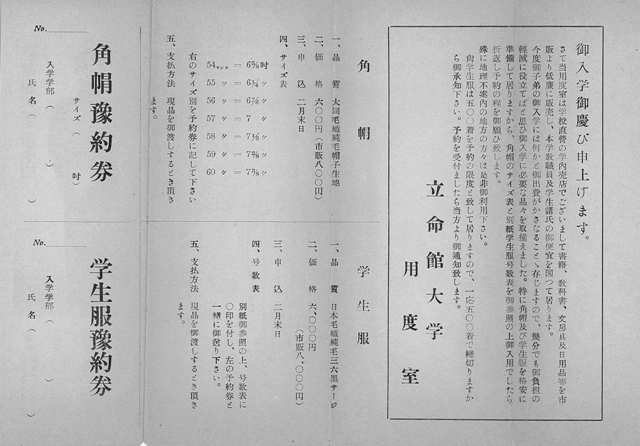 御入学御慶び申上げます。
さて当用度室は学校直営の学内売店でございまして書籍、教科書、文房具及日用品等を市
版より低廉に販売し、本学教職員及学生諸氏の御便宜を図つて居ります。
今度御子弟の御入学には何かと御出費がかさなることゝ存じますので、幾分でも御負担の
軽減に役立てばと思ひ御入学に必要な品々を取揃えました。特に角帽及び学生服を格安に
準備して居りますから、角帽のサイズ表と別紙学生服号数表を御参照の上御入用でしたら
折返し予約の程を御願ひ致します。
殊に地理不案内の地方の方々は是非御利用下さい。
尚学生服は五〇〇着を予約の限度と致して居りますので、一応五〇〇着で締切りますか
ら御承知下さい。予約を受付ましたら当方より御通知致します。
立命館大学
用度室
角帽
一、品質 大垌毛織純毛帽子生地
二、価格 六〇〇円(市販八〇〇円)
三、申込 二月末日
四、サイズ表
54 = 6¾吋
55 = 6⅞
56 = 6⅞
57 = 7
58 = 7⅛
59 = 7¼
60 = 7⅜
右のサイズ別を予約券に記して下さい
五、支払方法 現品を御渡しするとき頂き
ます。
学生服
一、品質 日本毛織純毛三六黒サージ
二、価格 六、〇〇〇円
(市販八、〇〇〇円)
三、申込 二月末日
四、号数表
別紙御参照の上、号数表に
〇印を付し、左の予約券と
一緒に御送り下さい。
五、支払方法 現品を御渡しするとき頂き
ます。
No.
角帽豫約券
サイズ( 吋)
入学学部( )
氏名( )
No.
学生服豫約券
入学学部( )
氏名( )